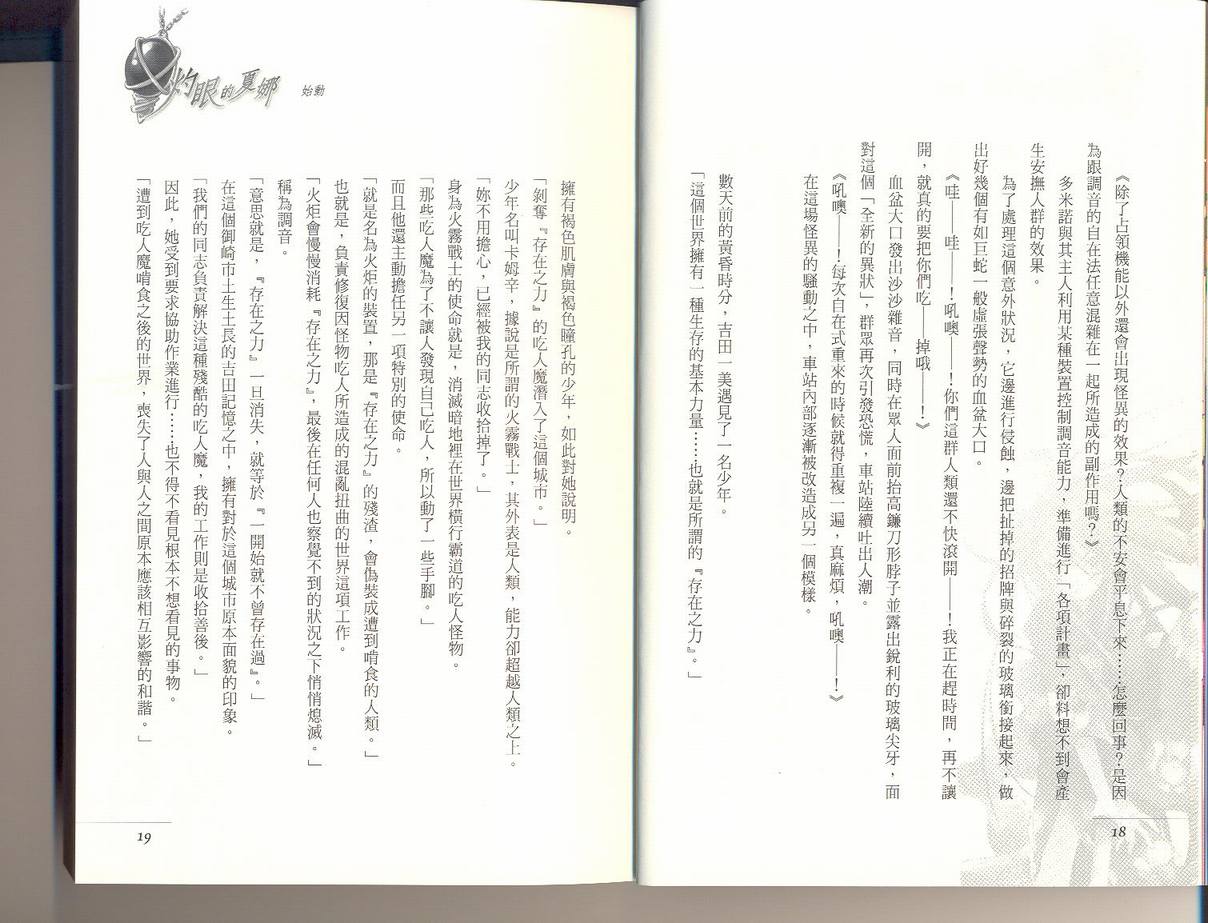 《除了占領機能以外還會出現怪異的效果？人類的不安會平息下來……怎麼回事？是因
為跟調音的自在法任意混雜在一起所造成的副作用嗎？》
多米諾與其主人利用某種裝置控制調音能力，準備進行「各項計畫」，卻料想不到會產
生安撫人群的效果。
為了處理這個意外狀況，它邊進行侵蝕，邊把扯掉的招牌與碎裂的玻璃銜接起來，做
出好幾個有如巨蛇一般虛張聲勢的血盆大口。
《哇——哇——！吼噢——！你們這群人類還不快滾開——！我正在趕時間，再不讓
開，就真的要把你們吃——掉哦——！》
血盆大口發出沙沙雜音，同時在眾人面前抬高鐮刀形脖子並露出銳利的玻璃尖牙，面
對這個「全新的異狀」，群眾再次引發恐慌，車站陸續吐出人潮。
《吼噢——！每次自在式重來的時候就得重複一遍，真麻煩，吼噢——！》
在這場怪異的騷動之中，車站內部逐漸被改造成另一個模樣。
數天前的黃昏時分，吉田一美遇見了一名少年。
「這個世界擁有一種生存的基本力量……也就是所謂的『存在之力』。」
18
灼眼的夏娜 始動
擁有褐色肌膚與褐色瞳孔的少年，如此對她說明。
「剝奪『存在之力』的吃人魔潛入了這個城市。」
少年名叫卡姆辛，據說是所謂的火霧戰士，其外表是人類，能力卻超越人類之上。
「妳不用擔心，已經被我的同志收拾掉了。」
身為火霧戰士的使命就是，消滅暗地裡在世界橫行霸道的吃人怪物。
「那些吃人魔為了不讓人發現自己吃人，所以動了一些手腳。」
而且他還主動擔任另一項特別的使命。
「就是名為火炬的裝置，那是『存在之力』的殘渣，會偽裝成遭到啃食的人類。」
也就是，負責修復因怪物吃人所造成的混亂扭曲的世界這項工作。
「火炬會慢慢消耗『存在之力』，最後在任何人也察覺不到的狀況之下悄悄熄滅。」
稱為調音。
「意思就是，『存在之力』一旦消失，就等於『一開始就不曾存在過』。」
在這個御崎市土生土長的吉田記憶之中，擁有對於這個城市原本面貌的印象。
「我們的同志負責解決這種殘酷的吃人魔，我的工作則是收拾善後。」
因此，她受到要求協助作業進行……也不得不看見根本不想看見的事物。
「遭到吃人魔啃食之後的世界，喪失了人與人之間原本應該相互影響的和諧。」
19